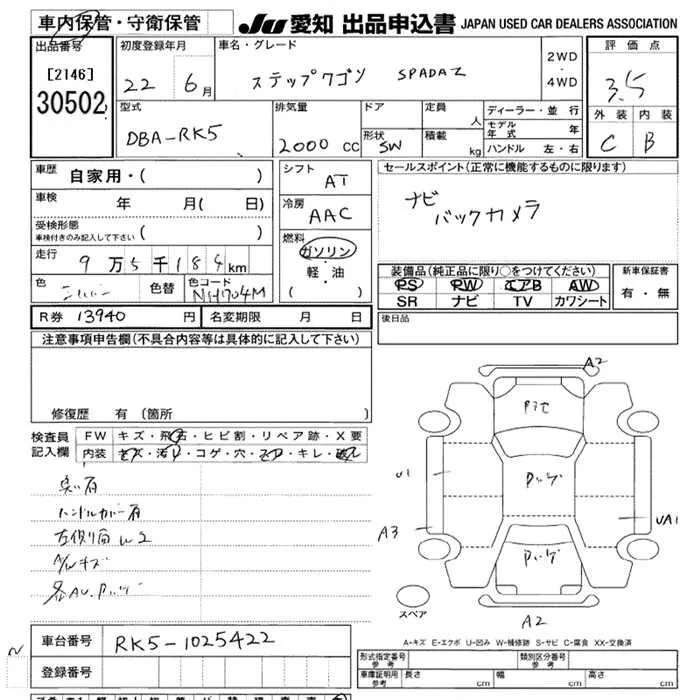 車内保管・守衛保管
JU 愛知 出品申込書 JAPAN USED CAR DEALERS ASSOCIATION
出品番号
[2146]
30502
初度登録年月
22 6月
車名・グレード
ステップワゴン SPADA Z
2WD
4WD
評価点
3.5
外装 内装
C B
型式
DBA-RK5
排気量
2000 cc
ドア
形状 SW
定員 人
積載 kg
ディーラー・並行
モデル年式 年
ハンドル 左・右
車歴 自家用・( )
車検 年 月( 日)
受検形態
車検付きのみ記入して下さい ( )
走行 9万5千184km
色 色替 色コード
NH704M
シフト
AT
冷房
AAC
燃料
ガソリン
軽・油
( )
セールスポイント(正常に機能するものに限ります)
ナビ
バックカメラ
装備品(純正品に限り○をつけてください)
PS PW エアB AW
SR ナビ TV カワシート
新車保証書
有・無
R券 13940 円 名変期限 月 日
後日品
注意事項申告欄(不具合内容等は具体的に記入して下さい)
修復歴 有 (箇所
検査員
記入欄
FW キズ・飛石・ヒビ割・リペア跡・X要
内装 キズ・汚れ・コゲ・穴・ ・キレ・破れ
臭い有
ハンドルカバー有
左側面 W2
A/Wキズ
各AU.
A2
U1
A3
UA1
A2
スペア
A-キズ E-エクボ U-凹み W-補修跡 S-サビ C-腐食 XX-交換済
N
車台番号 RK5-1025422
登録番号
形式指定番号
参考
類別区分番号
参考
車庫証明用
参考
長さ cm 幅 cm 高さ cm